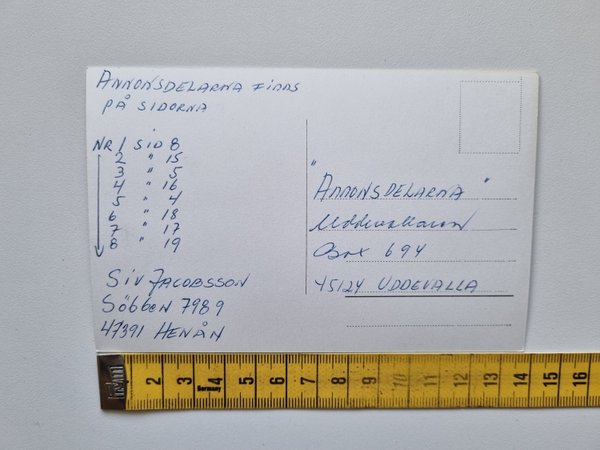 ANNONSDELARNA FINNS
PÅ SIDORNA
NR 1 SID 8
2 " 15
3 " 5
4 " 16
5 " 4
6 " 18
7 " 17
8 " 19
SIV JACOBSSON
SÖBBEN 7989
47391 HENÅN
"ANNONSDELARNA"
Uddevallaren
Box 694
45124 UDDEVALLA
2 3 4 5 6 7 8 9 10 11 12 13 14 15 16
Germany